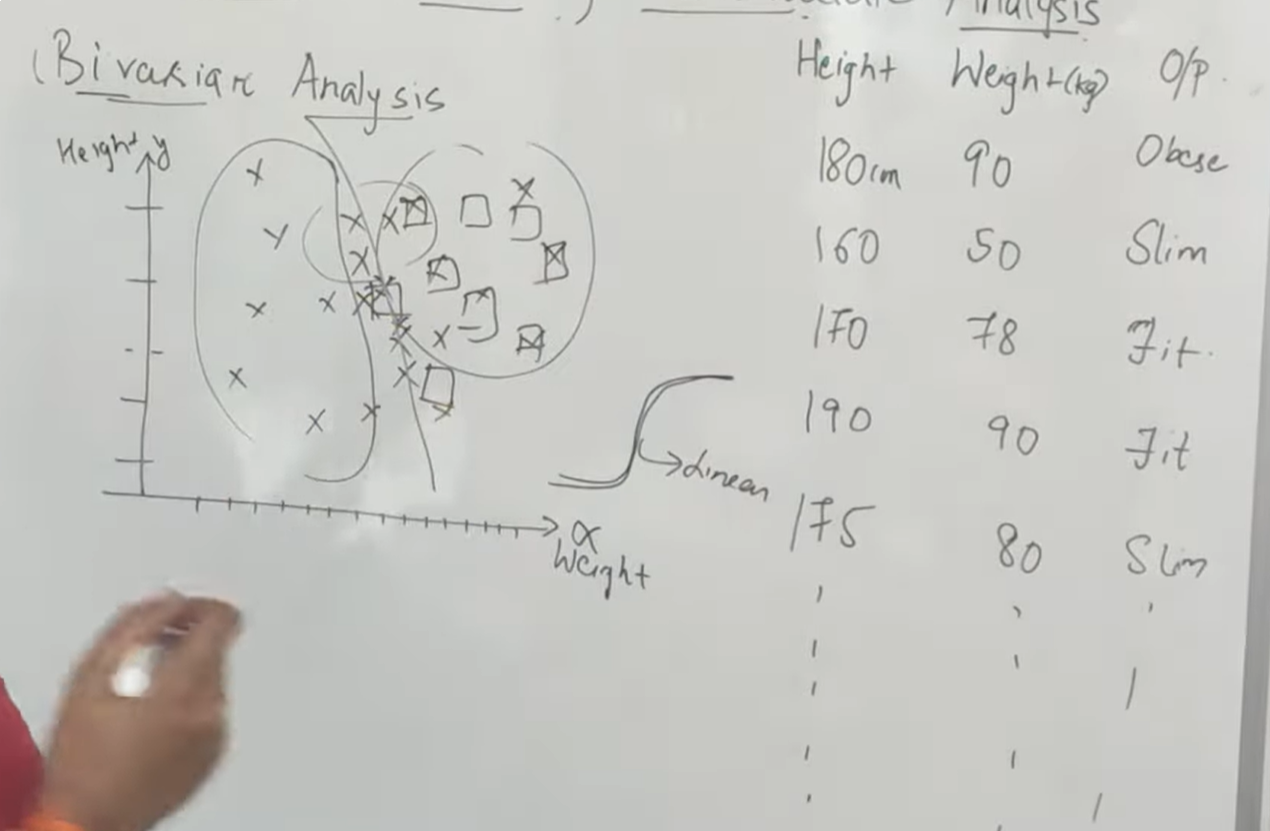 Analysis
(Bivariar Analysis
Height y
x
Weight
Linear
Height Weight(kg) O/P.
180cm 90 Obese
160 50 Slim
170 78 Fit.
190 90 Fit
175 80 Slim